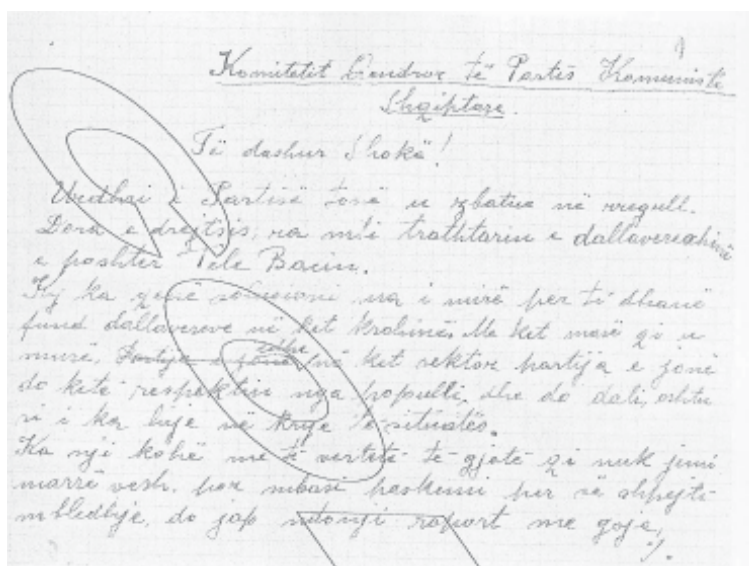 Komitetit Qendror të Partis Komuniste
Shqiptare.
Të dashur Shokë!
Urdhri i Partisë tonë u zbatue në rregull.
Dora e drejtsis, ra mbi trathtarin e dallaveraxhinë
e poshter Tele Bacin.
Ky ka qenë solucioni ma i mirë per ti dhanë
fund dallavereve në ket krahinë. Me ket masë qi u
murë, Partija e jonë edhe në ket sektor partija e jonë
do ketë respektin nga populli, dhe do dali, ashtu
si i ka hije në krye të situatës.
Ka nji kohë me të vertetë të gjatë qi nuk jemi
marrë vesh, por mbasi paskemi per së shpejti
mbledhje, do jap ndonji raport me gojë,